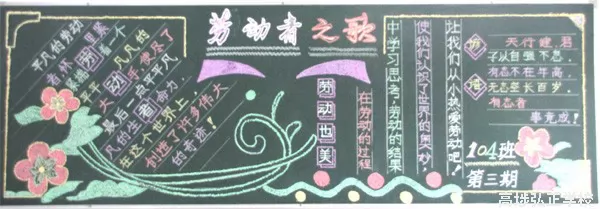 劳动者之歌
平凡的劳动
平平凡凡的
大动手使尽了
最后一点平平凡
凡的生者命力
在这个世界上,
创造了许多伟大
的奇迹!
劳动也美
在劳动的过程
中学习思考,劳动的结果
使我们认识了世界的奥妙,
让我们从小热爱劳动吧!
天行健君
子以自强不息
有志不在年高
无志空长百岁
有志者
事竟成!
104班
第三期